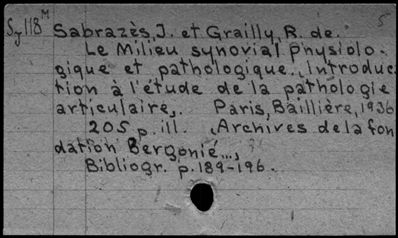 Sy 118ᴹ Sabrazès, J. et Grailly, R. de. 5
Le Milieu synovial physiolo-
gique et pathologique. Introduc-
tion à l'étude de la pathologie
articulaire. Paris, Baillière, 1936
205 p. ill. (Archives de la fon
dation Bergonié...,
Bibliogr. p. 189-196.